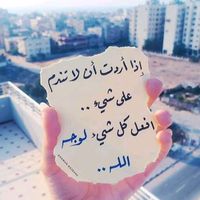 إذا أردت أن لا تندم
على شيء ..
افعل كل شيء لوجه
الله ..